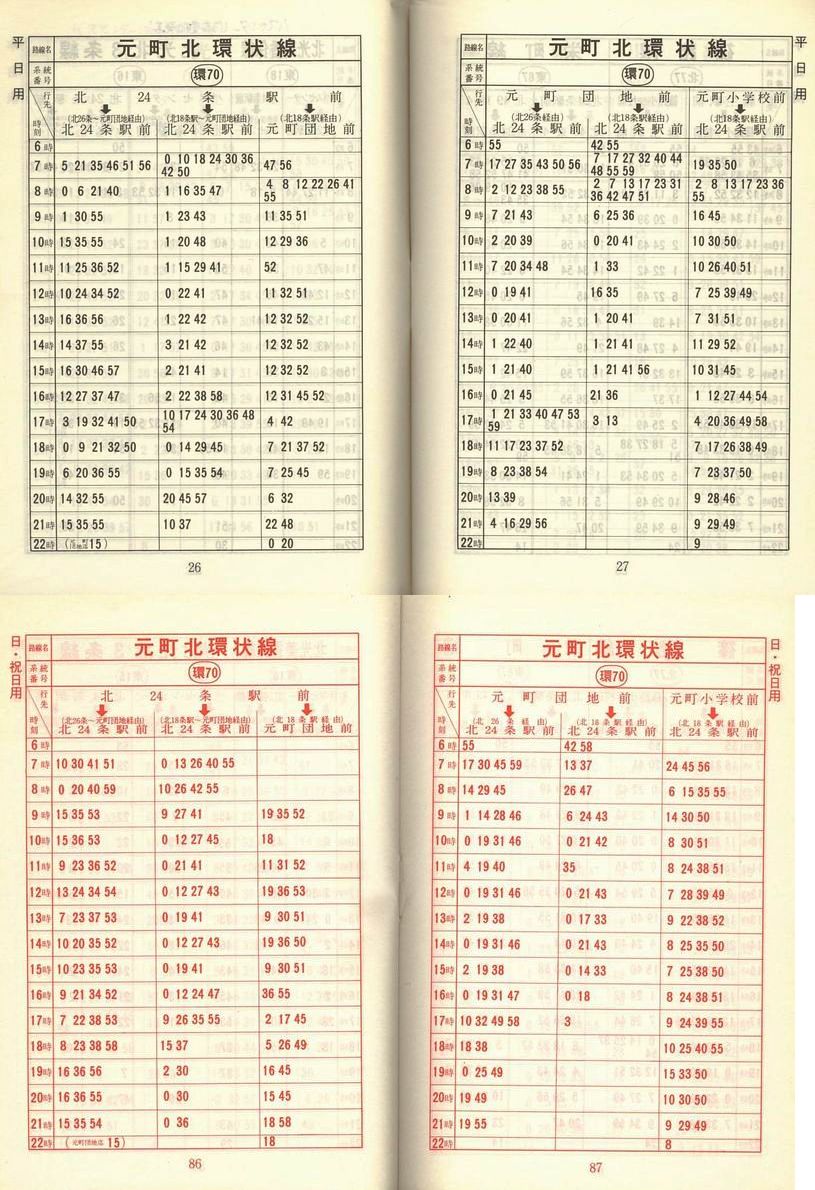 平日用
路線名 元町北環状線
系統番号 環70
行先 北24条駅前
時刻 (北26条〜元町団地経由) 北24条駅前 (北18条駅〜元町団地経由) 北24条駅前 (北18条駅経由) 元町団地前
6時
7時 5 21 35 46 51 56 | 0 10 18 24 30 36 42 50 | 47 56
8時 0 6 21 40 | 1 16 35 47 | 4 8 12 22 26 41 55
9時 1 30 55 | 1 23 43 | 11 35 51
10時 15 35 55 | 1 20 48 | 12 29 36
11時 11 25 36 52 | 1 15 29 41 | 52
12時 10 24 34 52 | 0 22 41 | 11 32 51
13時 16 36 56 | 1 22 42 | 12 32 52
14時 14 37 55 | 3 21 42 | 12 32 52
15時 16 30 46 57 | 2 21 41 | 12 32 52
16時 12 27 37 47 | 2 22 38 58 | 12 31 45 52
17時 3 19 32 41 50 | 10 17 24 30 36 48 54 | 4 42
18時 0 9 21 32 50 | 0 14 29 45 | 7 21 37 52
19時 6 20 36 55 | 0 15 35 54 | 7 25 45
20時 14 32 55 | 20 45 57 | 6 32
21時 15 35 55 | 10 37 | 22 48
22時 (15) | | 0 20
26
平日用
路線名 元町北環状線
系統番号 環70
行先 元町団地前 元町小学校前
時刻 (北26条経由) 北24条駅前 (北18条駅経由) 北24条駅前 (北18条駅経由) 北24条駅前
6時 55 | 42 55 |
7時 17 27 35 43 50 56 | 7 17 27 32 40 44 48 55 59 | 19 35 50
8時 2 12 23 38 55 | 2 7 13 17 23 31 36 42 47 51 | 2 8 13 17 23 36 55
9時 7 21 43 | 6 25 36 | 16 45
10時 2 20 39 | 0 20 41 | 10 30 50
11時 7 20 34 48 | 1 33 | 10 26 40 51
12時 0 19 41 | 16 35 | 7 25 39 49
13時 0 20 41 | 1 20 41 | 7 31 51
14時 1 22 40 | 1 21 41 | 11 29 52
15時 1 21 40 | 1 21 41 56 | 10 31 45
16時 0 21 45 | 21 36 | 1 12 27 44 54
17時 1 21 33 40 47 53 59 | 3 13 | 4 20 36 49 58
18時 11 17 23 37 52 | | 7 17 26 38 49
19時 8 23 38 54 | | 7 23 37 50
20時 13 39 | | 9 28 46
21時 4 16 29 56 | | 9 29 49
22時 | | 9
27
日・祝日用
路線名 元町北環状線
系統番号 環70
行先 北24条駅前
時刻 (北26条〜元町団地経由) 北24条駅前 (北18条駅〜元町団地経由) 北24条駅前 (北18条駅経由) 元町団地前
6時
7時 10 30 41 51 | 0 13 26 40 55 |
8時 0 20 40 59 | 10 26 42 55 |
9時 15 35 53 | 9 27 41 | 19 35 52
10時 15 36 53 | 0 12 27 45 | 18
11時 9 23 36 52 | 0 21 41 | 11 31 52
12時 13 24 34 54 | 0 12 27 43 | 19 36 53
13時 7 23 37 53 | 0 19 41 | 9 30 51
14時 10 20 35 52 | 0 12 27 43 | 19 36 50
15時 10 23 35 53 | 0 19 41 | 9 30 51
16時 9 21 34 52 | 0 12 24 47 | 36 55
17時 7 22 38 53 | 9 26 35 55 | 2 17 45
18時 8 23 38 58 | 15 37 | 5 26 49
19時 16 36 56 | 2 30 | 16 45
20時 16 36 55 | 0 30 | 15 45
21時 15 35 54 | 0 36 | 18 58
22時 (元町団地迄 15) | | 18
86
日・祝日用
路線名 元町北環状線
系統番号 環70
行先 元町団地前 元町小学校前
時刻 (北26条経由) 北24条駅前 (北18条駅経由) 北24条駅前 (北18条駅経由) 北24条駅前
6時 55 | 42 58 |
7時 17 30 45 59 | 13 37 | 24 45 56
8時 14 29 45 | 26 47 | 6 15 35 55
9時 1 14 28 46 | 6 24 43 | 14 30 50
10時 0 19 31 46 | 0 21 42 | 8 30 51
11時 4 19 40 | 35 | 8 24 38 51
12時 0 19 31 46 | 0 21 43 | 7 28 39 49
13時 2 19 38 | 0 17 33 | 9 22 38 52
14時 0 19 31 46 | 0 21 43 | 8 25 35 50
15時 2 19 38 | 0 14 33 | 7 25 38 50
16時 0 19 31 47 | 0 18 | 8 24 38 51
17時 10 32 49 58 | 3 | 9 24 39 55
18時 18 38 | | 10 25 40 55
19時 0 25 49 | | 15 33 50
20時 19 49 | | 10 30 50
21時 19 55 | | 9 29 49
22時 | | 8
87